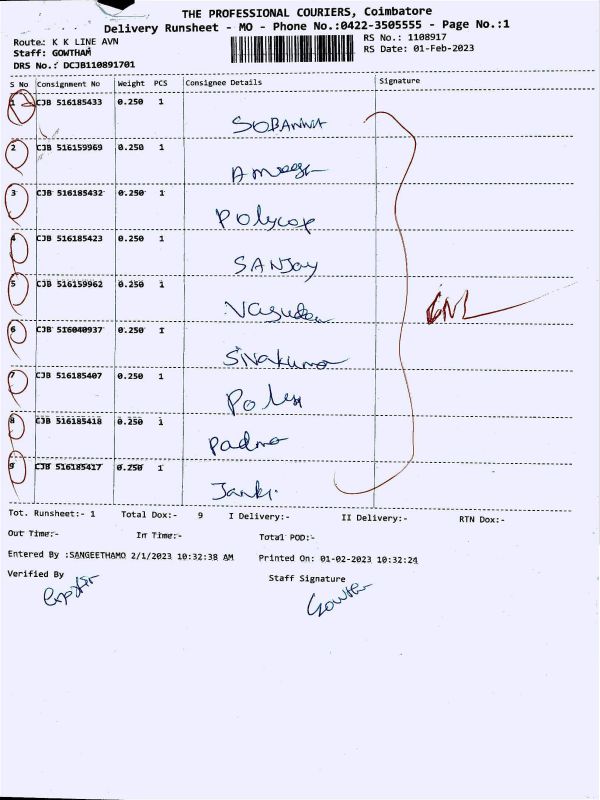 THE PROFESSIONAL COURIERS, Coimbatore
Delivery Runsheet - MO - Phone No.:0422-3505555 - Page No.:1
Route: K K LINE AVN
RS No.: 1108917
Staff: GOWTHAM
RS Date: 01-Feb-2023
DRS No.: DCJB110891701
S No Consignment No Weight PCS Consignee Details Signature
1 CJB 516185433 0.250 1
SOBANNA
2 CJB 516159969 0.250 1
3 CJB 516185432 0.250 1
Polycox
4 CJB 516185423 0.250 1
SANJay
5 CJB 516159962 0.250 1
Vasudev
6 CJB 516040937 0.250 1
Sivakumar
7 CJB 516185407 0.250 1
8 CJB 516185418 0.250 1
Padma
9 CJB 516185417 0.250 1
Janki
Tot. Runsheet:- 1 Total Dox:- 9 I Delivery:- II Delivery:- RTN Dox:-
Out Time:- In Time:- Total POD:-
Entered By :SANGEETHAMO 2/1/2023 10:32:38 AM Printed On: 01-02-2023 10:32:24
Verified By Staff Signature